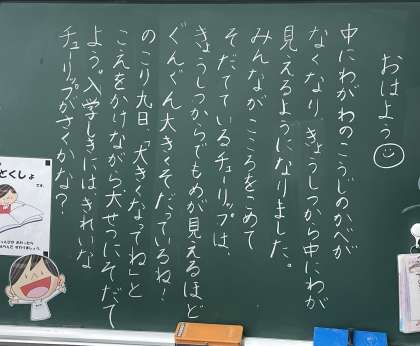 おはよう☺
中にわがわのこうじのかべが
なくなり きょうしつから中にわが
見えるようになりました。
みんながこころをこめて
そだてているチューリップは、
きょうしつからでもめが見えるほど
ぐんぐん大きくそだっているね！
のこり九日、「大きくなってね」と
こえをかけながら大せつにそだて
よう。入学しきにはきれいな
チューリップがさくかな？
とくしょ
です。